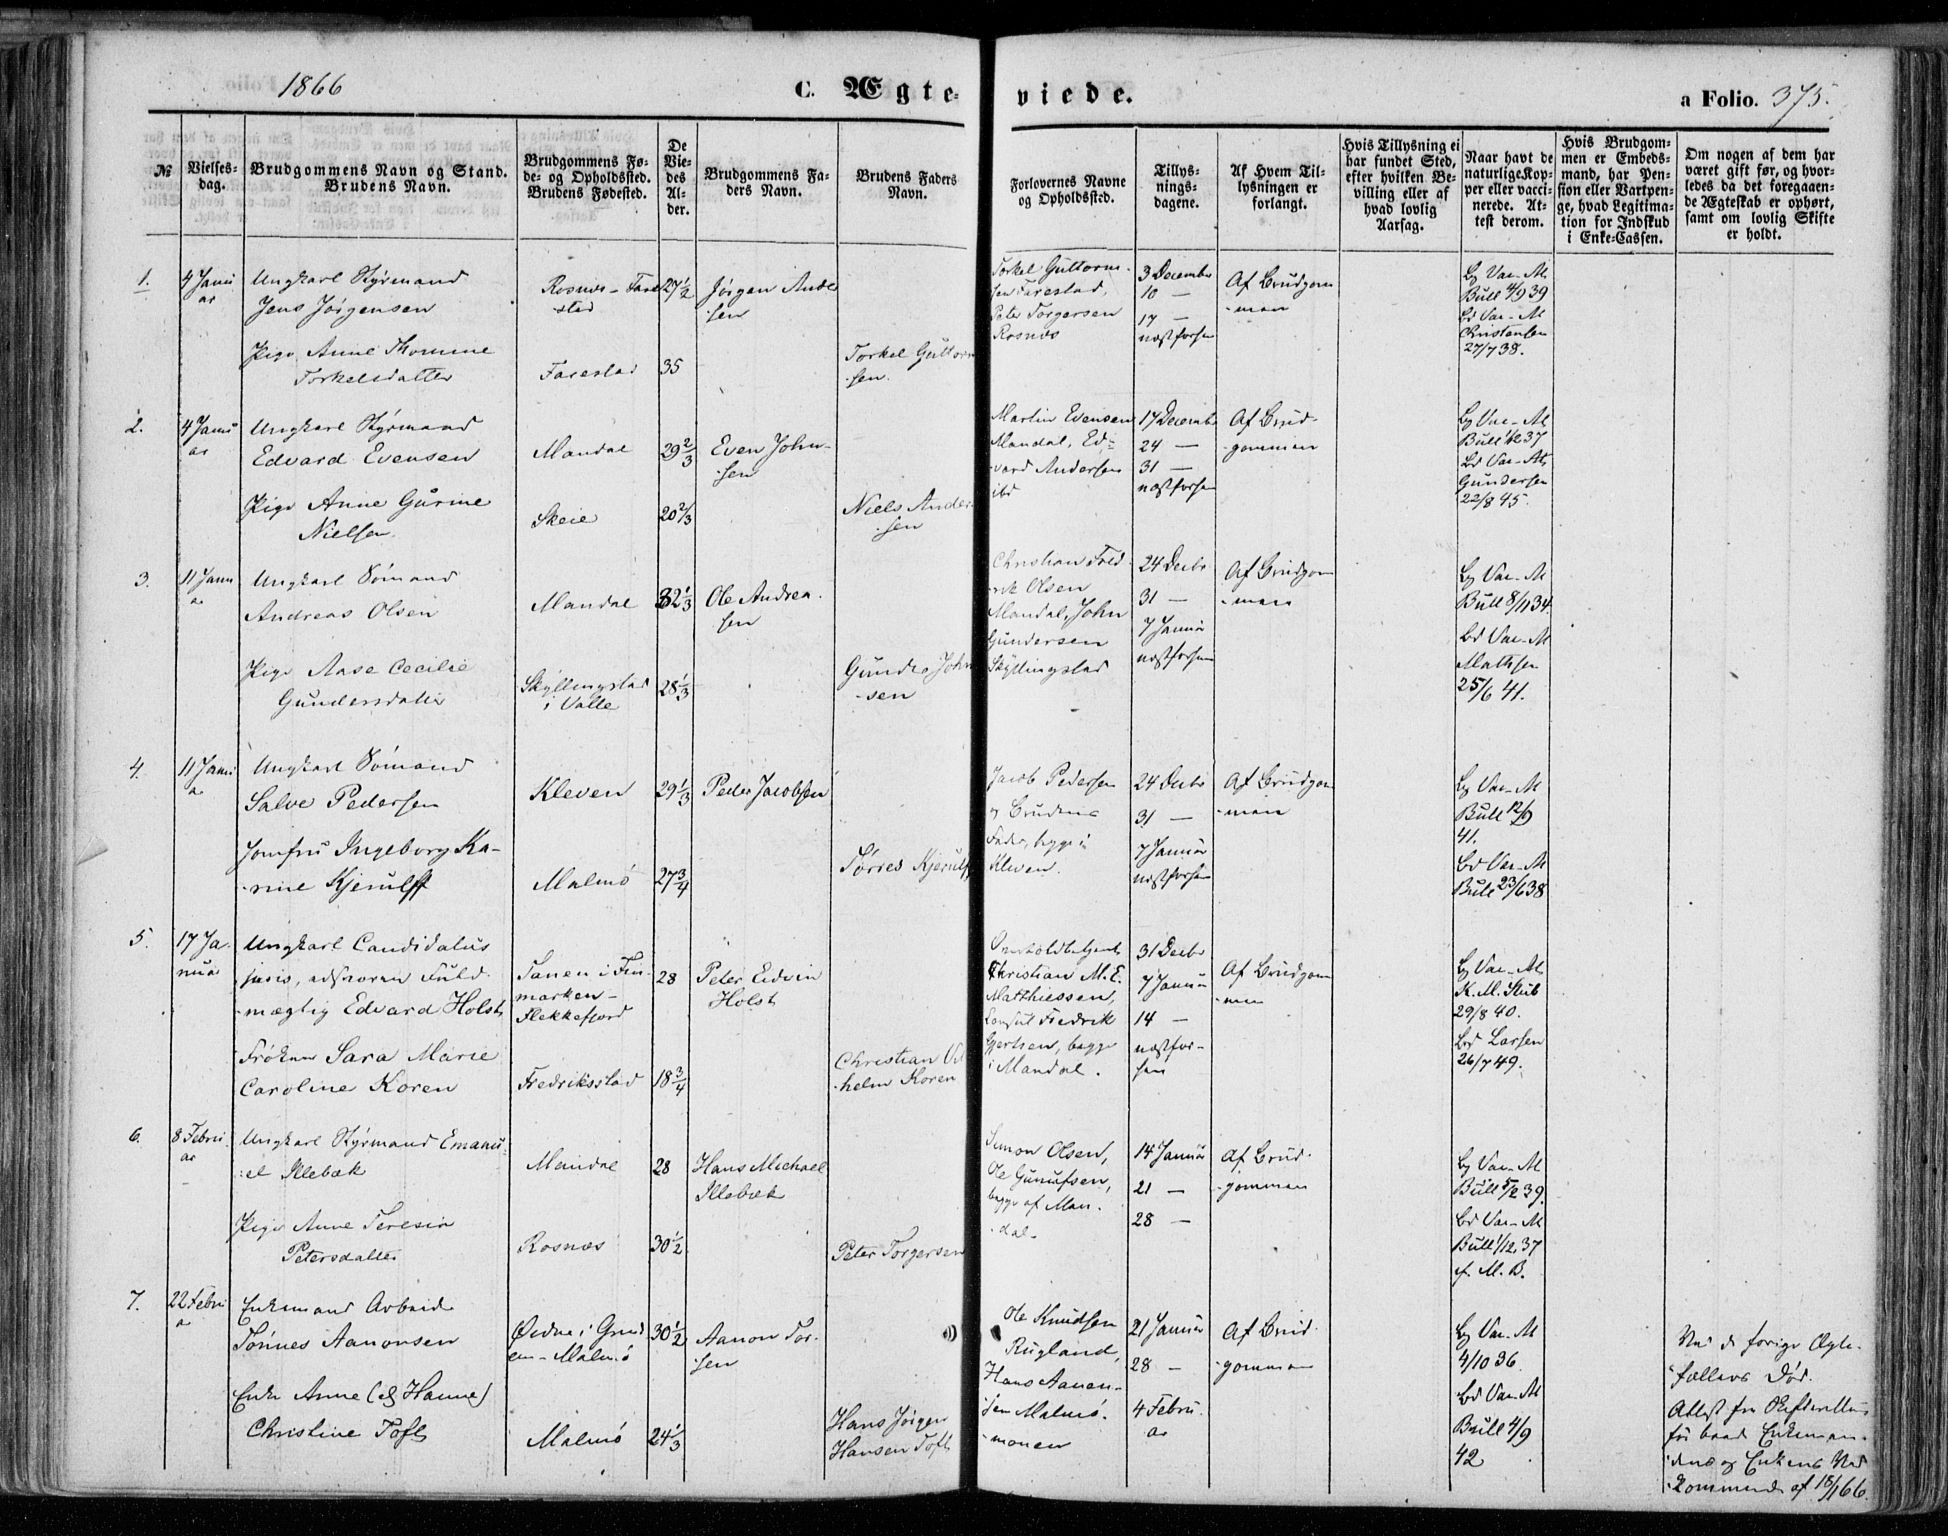 1866
C. Ægte-
viede.
a Folio. 375.
№
Vielses-
dag.
Brudgommens Navn og Stand.
Brudens Navn.
Brudgommens Fø-
de- og Opholdssted.
Brudens Fødested.
De
Vie-
des
Al-
der.
Brudgommens Fa-
ders Navn.
Brudens Faders
Navn.
Forlovernes Navne
og Opholdssted.
Tillys-
nings-
dagene.
Af Hvem Til-
lysningen er
forlangt.
Hvis Tillysning ei
har fundet Sted,
efter hvilken Be-
villing eller af
hvad lovlig
Aarsag.
Naar havt de
naturlige Kop-
per eller vacci-
nerede. At-
test derom.
Hvis Brudgom-
men er Embeds-
mand, har Pen-
sion eller Vartpen-
ge, hvad Legitima-
tion for Indskud
i Enke-Cassen.
Om nogen af dem har
været gift før, og hvor-
ledes da det foregaaen-
de Ægteskab er ophørt,
samt om lovlig Skifte
er holdt.
1.
4 Janu
ar
Ungkarl Styrmand
Jens Jørgensen
Pige Anne Thomine
Torkelsdatter
Rosnæs - Fare
-stad
Farestad
27 1/2
35
Jørgen Ande
sen
Torkel Guttorm
-sen.
Torkel Guttorm-
sen Farestad,
Peter Torgersen
Rosnæs
3 December
10 —
17 —
næstforhen
Af Brudgom
-men
Bg Vac-At
Bull 4/9 39
Bd Vac-At
Christensen
27/7 38.
2.
4 Janu
ar
Ungkarl Styrmand
Edvard Evensen
Pige Anne Gurine
Nielsen.
Mandal
Skeie
29 2/3
20 2/3
Even John-
-sen
Niels Ander
-sen
Martin Evensen
Mandal, Ed-
vard Andersen
ibd
17 Decembr
24 —
31 —
næstforhen
Af Brud-
gommen
Bg Vac-At
Bd Vac-At
Gundersen
22/8 45.
3.
11 Janu
a
Ungkarl Sømand
Andreas Olsen
Pige Aase Cecilie
Gundersdatter
Mandal
Skyllingstad
i Valle
32 1/3
28 1/3
Ole Andrea-
sen
Gunder John
-sen
Christian Fred
rik Olsen
Mandal, John
Gundersen
Skyllingstad
24 Decbr
31 —
7 Januar
næstforhen
Af Brudgom
-men
Bg Vac-At
Bull 8/11 34.
Bd Vac-At
Mathsen
25/6 41.
4.
11 Janu
a
Ungkarl Sømand
Salve Pedersen
Jomfru Ingeborg Ka-
-rine Kjerulff
Kleven
Malmø
29 1/3
27 3/4
Peder Jacobsen
Tørres Kjerulff
Jacob Pedersen
og Brudens
Fader, begge i
Kleven.
24 Decbr
31 —
7 Januar
næstforhen
Af Brudgom
-men
Bg Vac-At
Bull 12/9
41.
Bd Vac-At
Bull 23/6 38
5.
17 Ja-
nuar
Ungkarl Candidatus
juris, edsvoren Fuld
-mægtig Edvard Holst
Frøken Sara Marie
Caroline Koren
Tanen i Fin-
marken -
Flekkefjord
Fredriksstad
28
18 3/4
Peter Edvin
Holst
Christian Vil
-helm Koren
Christian M. E.
Matthiessen,
Consul Fredrik
Gjertsen, begge
i Mandal.
31 Decbr
7 Januar
14 —
næstfor-
hen
Af Brudgom
men
Bg Vac-At
K. M. Stub
29/8 40.
Bd Larsen
26/7 49.
6.
8 Febru
ar
Ungkarl Styrmand Emanu-
-el Illebæk
Pige Anne Teresie
Petersdatter
Mandal
Rosnæs
28
30 1/2
Hans Michael
Illebæk
Peter Torgersen
Simon Olsen,
Ole Gunufsen,
begge af Man-
-dal.
14 Januar
21 —
28 —
Af Brud-
-gommen
Bg Vac-At
Bull 5/2 39.
Bd Vac-At
Bull 1/12 37
ef. M. B.
7.
22 Febru
a
Enkemand Arbeider
Tønnes Aanonsen
Enke Anne (el Hanne)
Christine Toft
Øidne i Grind
em - Malmø
Malmø
30 1/2
24 1/3
Aanon Tor-
-sen
Hans Jørgen
Hansen Toft
Ole Knudsen
Rugland,
Hans Aanen-
sen Malmø.
-monen
21 Januar
28 —
4 Febru
ar
Af Brud-
gommen
Bg Vac-At
4/10 36
Bd Vac-At
Bull 4/9
42
Ved de forige Ægte-
fællers Død.
Attest fra Skifteretten
for baade Enkeman-
-dens og Enkens Ved
-kommende af 15/1 66.